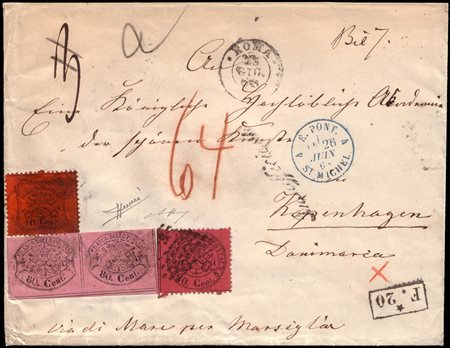 ROMA
23
An
Eine Königliche Hochlöbliche Akademie
der schönen Künste
64
E. PONT.
26
JUIN
ST MICHEL
Kopenhagen
Danimarca
10 Cent.
80. Cent.
80. Cent.
F. 20
via di Mare per Marsiglia